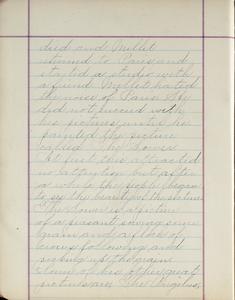 died and Millet
returned to Paris and
started a studio with
a friend. Millet hated
the noise of Paris. He
did not succeed with
his pictures until he
painted the picture
called The Sower.
At first this attracted
no attention but after
a while the people began
to see the beauty of the
The Sower is a picture
of a peasant sowing some
grain and a flock of
crows following and
picking up the grain
Some of his other great
pictures are The Angelus,